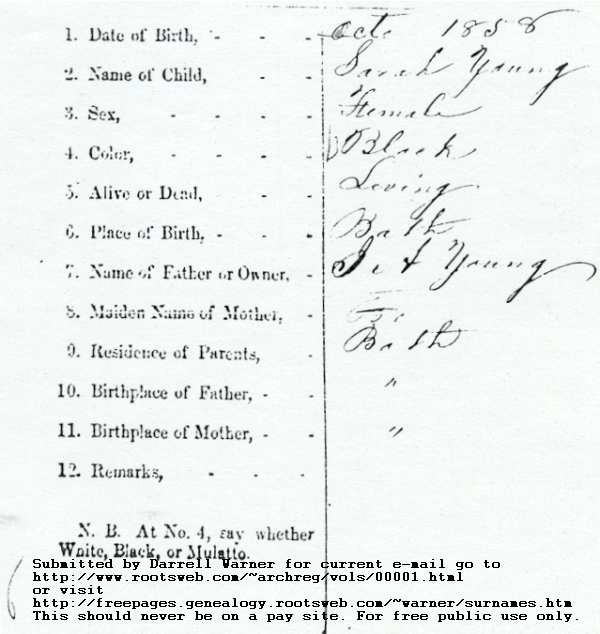 1. Date of Birth, - - - Octo 1858
2. Name of Child, - - Sarah Young
3. Sex, - - - - Female
4. Color, - - - - Black
5. Alive or Dead, - - Living
6. Place of Birth, - - - Bath
7. Name of Father or Owner, - Young
8. Maiden Name of Mother, -
9. Residence of Parents, - Bath
10. Birthplace of Father, - - "
11. Birthplace of Mother, - - "
12. Remarks, - - -
N. B. At No. 4, say whether
White, Black, or Mulatto.
Submitted by Darrell Warner for current e-mail go to
http://www.rootsweb.com/~archreg/vols/00001.html
or visit
http://freepages.genealogy.rootsweb.com/~warner/surnames.htm
This should never be on a pay site. For free public use only.